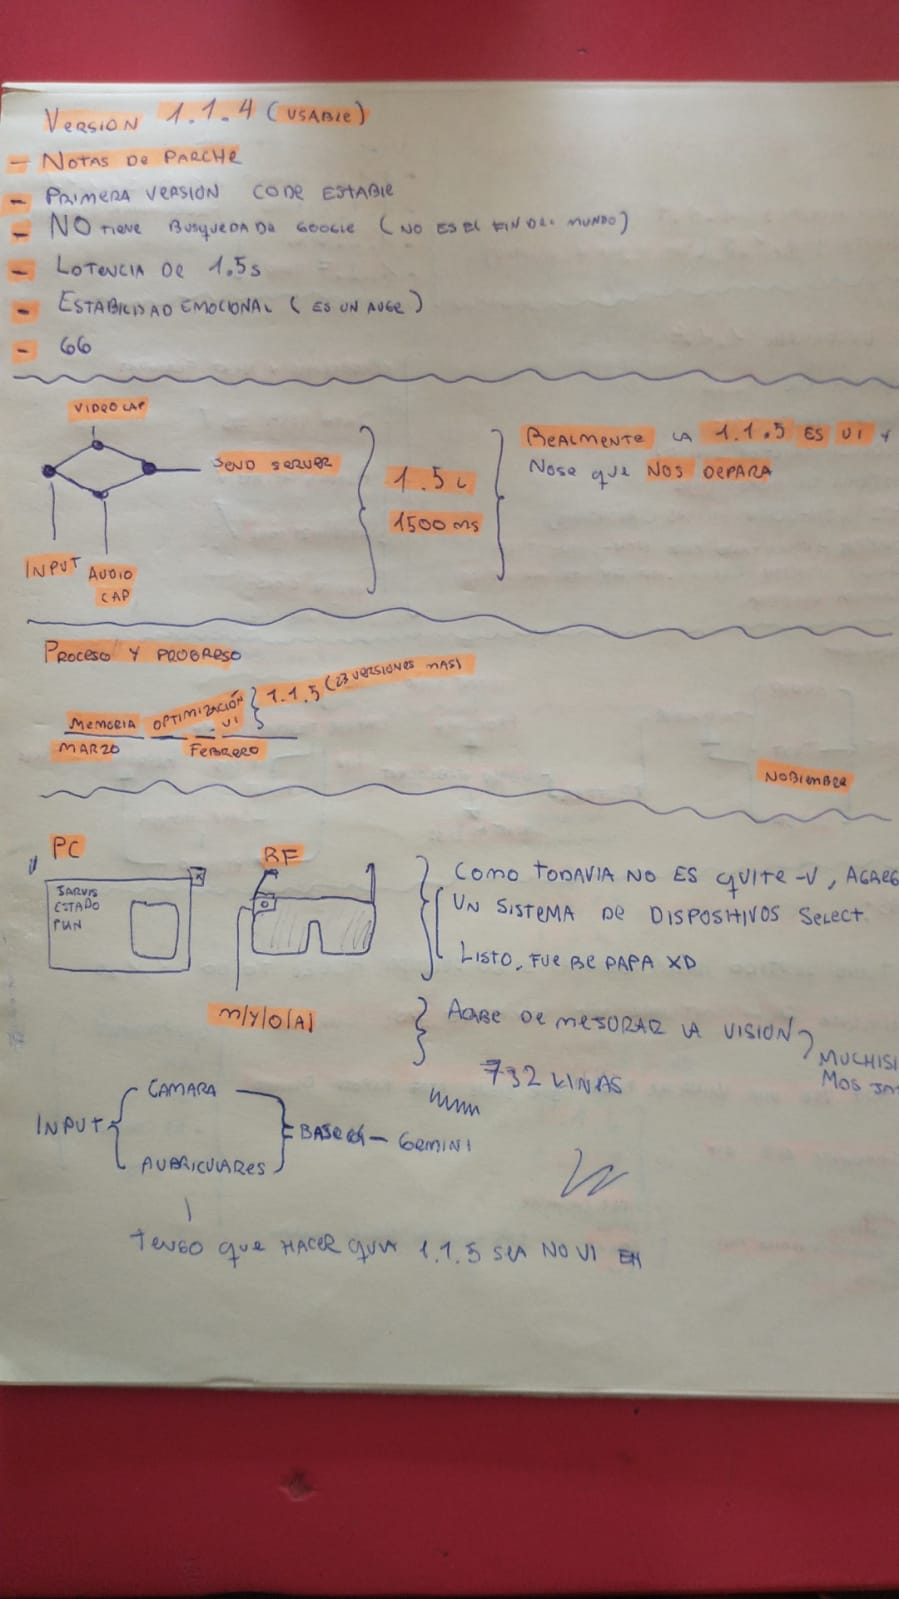 VERSION 1.1.4 (USABLE)
- NOTAS DE PARCHE
- PRIMERA VERSION CODE ESTABLE
- NO TIENE BUSQUEDA DE GOOGLE (NO ES EL FIN DEL MUNDO)
- LOTENCIA DE 1.5s
- ESTABILIDAD EMOCIONAL (ES UN AUGE)
- GG
VIDEO CAP
SEND SERVER
INPUT
AUDIO
CAP
1.5
1500 ms
REALMENTE LA 1.1.5 ES UI Y
NOSE QUE NOS DEPARA
PROCESO Y PROGRESO
MEMORIA OPTIMIZACIÓN UI } 1.1.5 (23 VERSIONES MAS)
MARZO FEBRERO
NOBIEMBRE
PC
JARVIS
ESTADO
RF
COMO TODAVIA NO ES QUITE-V, AGREG
UN SISTEMA DE DISPOSITIVOS SELECT
LISTO, FUE RE PAPA XD
M/Y/O/A
ACABE DE MEJORAR LA VISION
MUCHISI
MOS
732 LINAS
INPUT
CAMARA
AURICULARES
- GEMINI
TENGO QUE HACER QUE 1.1.5 SEA NO UI EN